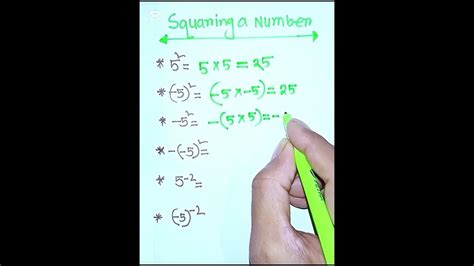 Squaring a Number
* 5² = 5 × 5 = 25
* (-5)² = (-5 × -5) = 25
* -5² = -(5 × 5) = -
* -(-5)² =
* 5⁻² =
* (-5)⁻²